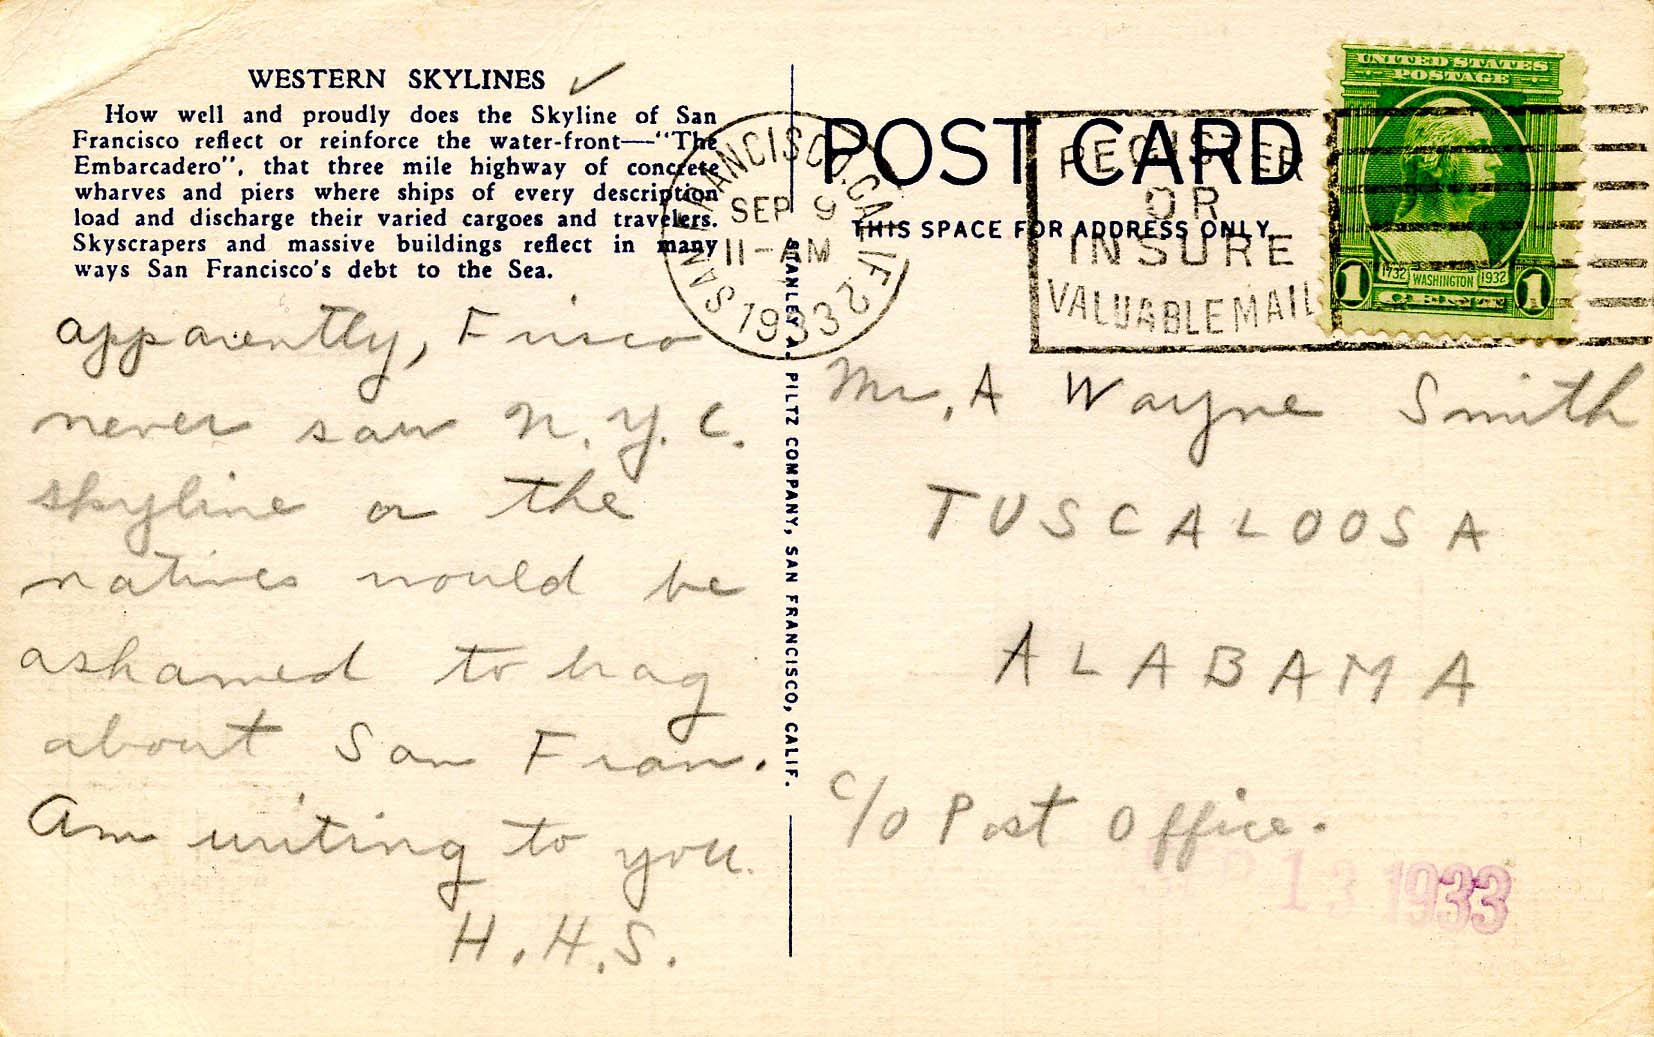 WESTERN SKYLINES
How well and proudly does the Skyline of San
Francisco reflect or reinforce the water-front—"The
Embarcadero", that three mile highway of concrete
wharves and piers where ships of every description
load and discharge their varied cargoes and travelers.
Skyscrapers and massive buildings reflect in many
ways San Francisco's debt to the Sea.
apparently, Frisco
never saw N.Y.C.
skyline or the
natives would be
ashamed to brag
about San Fran.
Am writing to you.
H.H.S.
STANLEY A. PILTZ COMPANY, SAN FRANCISCO, CALIF.
SAN FRANCISCO, CALIF. 2
SEP 9
11-AM
1933
POST CARD
THIS SPACE FOR ADDRESS ONLY
REGISTER
OR
INSURE
VALUABLE MAIL
UNITED STATES
POSTAGE
1732 WASHINGTON 1932
1 1
Mr. A Wayne Smith
TUSCALOOSA
ALABAMA
c/o Post Office.
SEP 13 1933